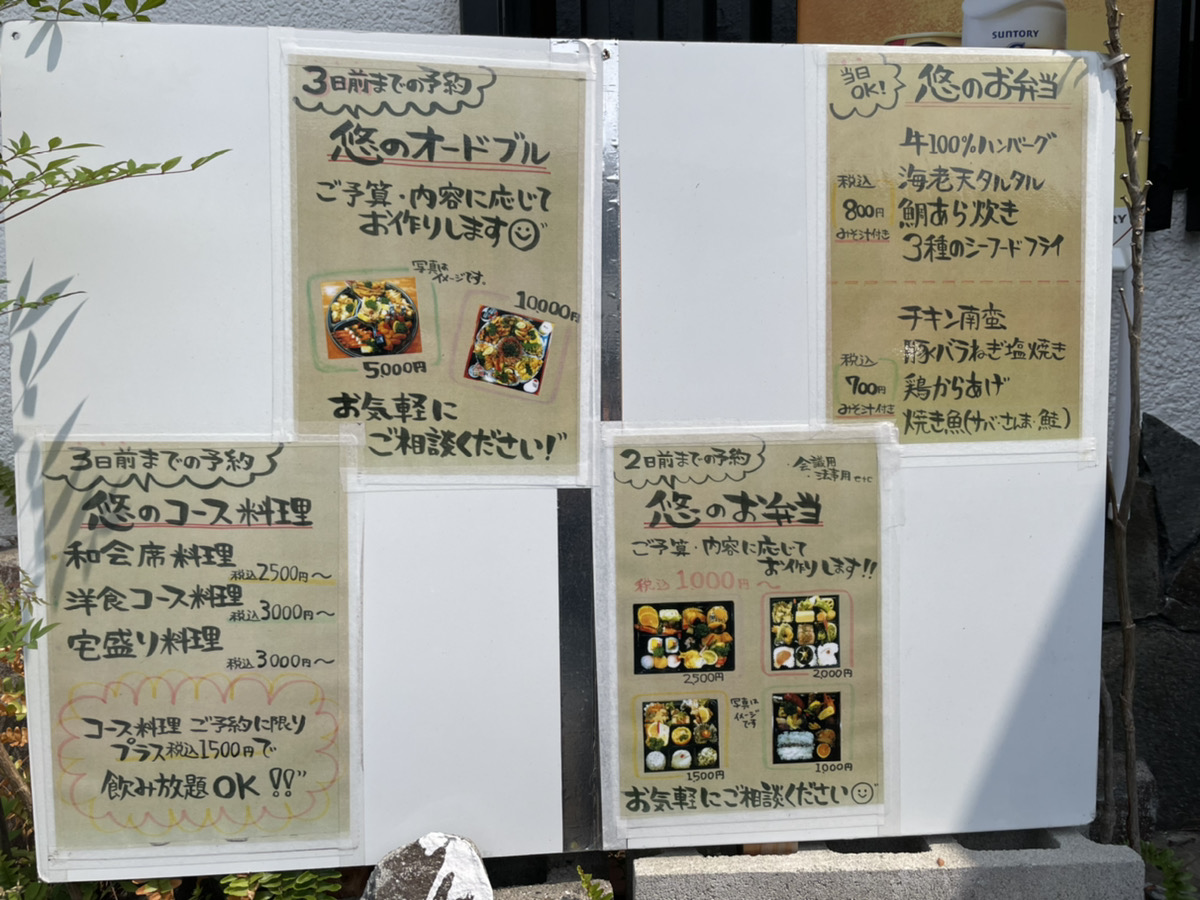 SUNTORY
3日前までの予約
悠のオードブル
ご予算・内容に応じて
お作りします
写真は
イメージです。
10,000円
5,000円
お気軽に
ご相談ください!
当日
OK!
悠のお弁当
牛100%ハンバーグ
海老天タルタル
鯛あら炊き
3種のシーフードフライ
税込
800円
みそ汁付き
チキン南蛮
豚バラねぎ塩焼き
鶏からあげ
焼き魚(サバ・さんま・鮭)
税込
700円
みそ汁付き
3日前までの予約
悠のコース料理
和会席料理
税込2500円～
洋食コース料理
税込3000円～
宅盛り料理
税込3000円～
コース料理 ご予約に限り
プラス税込1500円で
飲み放題OK!!
2日前までの予約
・会議用
・法事用 etc
悠のお弁当
ご予算・内容に応じて
お作りします!!
税込1000円～
2,500円
2,000円
写真は
イメージ
です
1500円
1,000円
お気軽にご相談ください